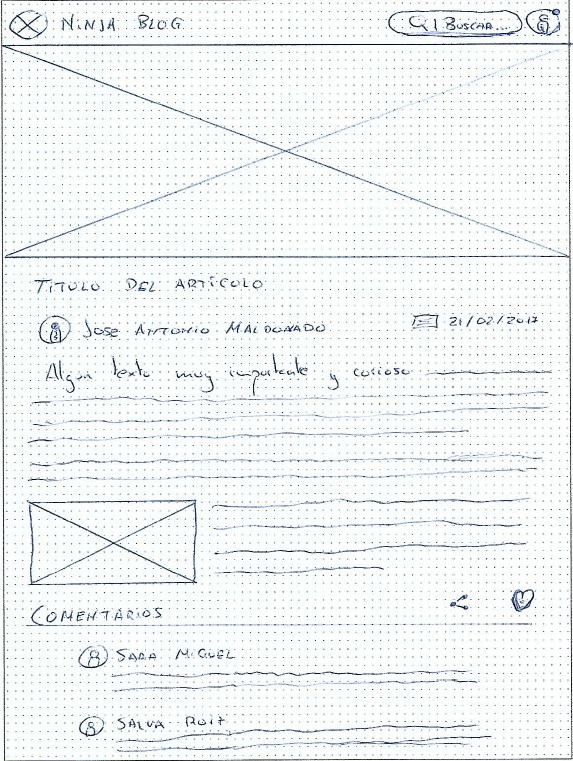 NINJA BLOG
BUSCAR...
TITULO DEL ARTÍCULO
JOSE ANTONIO MALDONADO
21/02/2017
Algun texto muy importante y curioso
COMENTARIOS
SARA MIGUEL
SALVA RUIZ